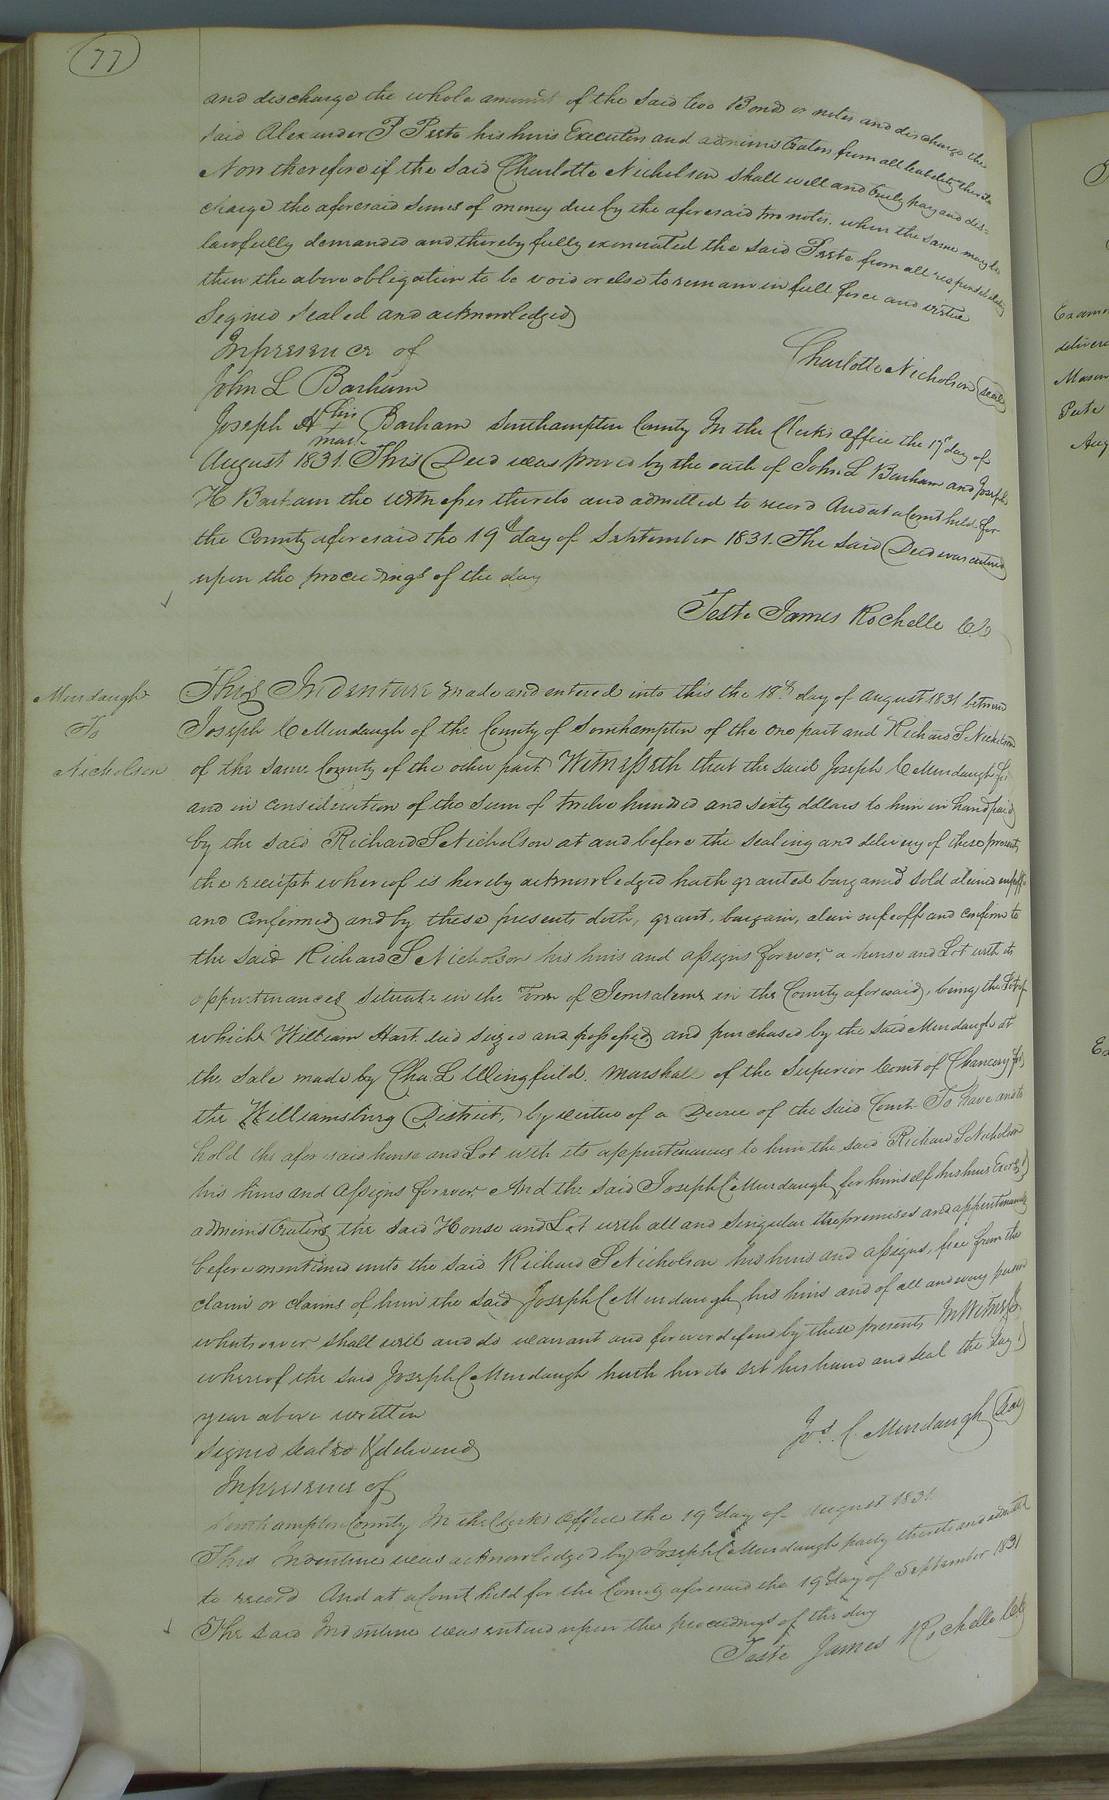 77
and discharge the whole amount of the said two Bonds or notes and discharge the
said Alexander P Peete his heirs Executors and administrators from all liability thereto
Now therefore if the said Charlotte Nicholson shall well and truly pay and dis=
charge the aforesaid sums of money due by the aforesaid two notes, when the same may be
lawfully demanded and thereby fully exonerated the said Peete from all responsibility
then the above obligation to be void or else to remain in full force and virtue
Signed sealed and acknowledged
In presence of
Charlotte Nicholson seal
John L Barham
Joseph H his mark Barham Southampton County In the Clerks office the 19th day of
August 1831. This Deed was proved by the oath of John L Barham and Joseph
H Barham the witnesses thereto and admitted to record And at a Court held for
the County aforesaid the 19th day of September 1831. The said Deed was entered
upon the proceedings of the day
Teste James Rochelle CC
Murdaugh
To
Nicholson
This Indenture made and entered into this the 18th day of August 1831 between
Joseph C Murdaugh of the County of Southampton of the one part and Richard S Nicholson
of the same County of the other part. Witnesseth that the said Joseph C Murdaugh for
and in consideration of the sum of twelve hundred and sixty dollars to him in hand paid
by the said Richard S Nicholson at and before the sealing and delivery of these presents
the receipt whereof is hereby acknowledged hath granted bargained sold aliened enfeoff
and confirmed and by these presents doth, grant, bargain, alien enfeoff and confirm to
the said Richard S Nicholson his heirs and assigns forever, a house and Lot with its
appurtenances situate in the Town of Jerusalem in the County aforesaid, being the Lot of
which William Hart died seized and possessed and purchased by the said Murdaugh at
the sale made by Cha. L Wingfield, marshall of the Superior Court of Chancery for
the Williamsburg District, by virtue of a Decree of the said Court To have and to
hold the aforesaid house and Lot with its appurtenances to him the said Richard S Nicholson
his heirs and assigns forever. And the said Joseph C Murdaugh for himself his heirs Exors &
administrators the said House and Lot with all and singular the premises and appurtenances
before mentioned unto the said Richard S Nicholson his heirs and assigns, free from the
claim or claims of him the said Joseph C Murdaugh his heirs and of all and every person
whatsoever shall will and do warrant and forever defend by these presents In Witness
whereof the said Joseph C Murdaugh hath hereto set his hand and seal the day &
year above written
Jos. C. Murdaugh seal
Signed sealed & delivered
In presence of
Southampton County In the Clerks office the 19th day of August 1831.
This Indenture was acknowledged by Joseph C Murdaugh party thereto and admitted
to record And at a Court held for the County aforesaid the 19th day of September 1831
The said Indenture was entered upon the proceedings of the day
Teste James Rochelle Clk
Exam
delivere
Mason
Peete
Aug